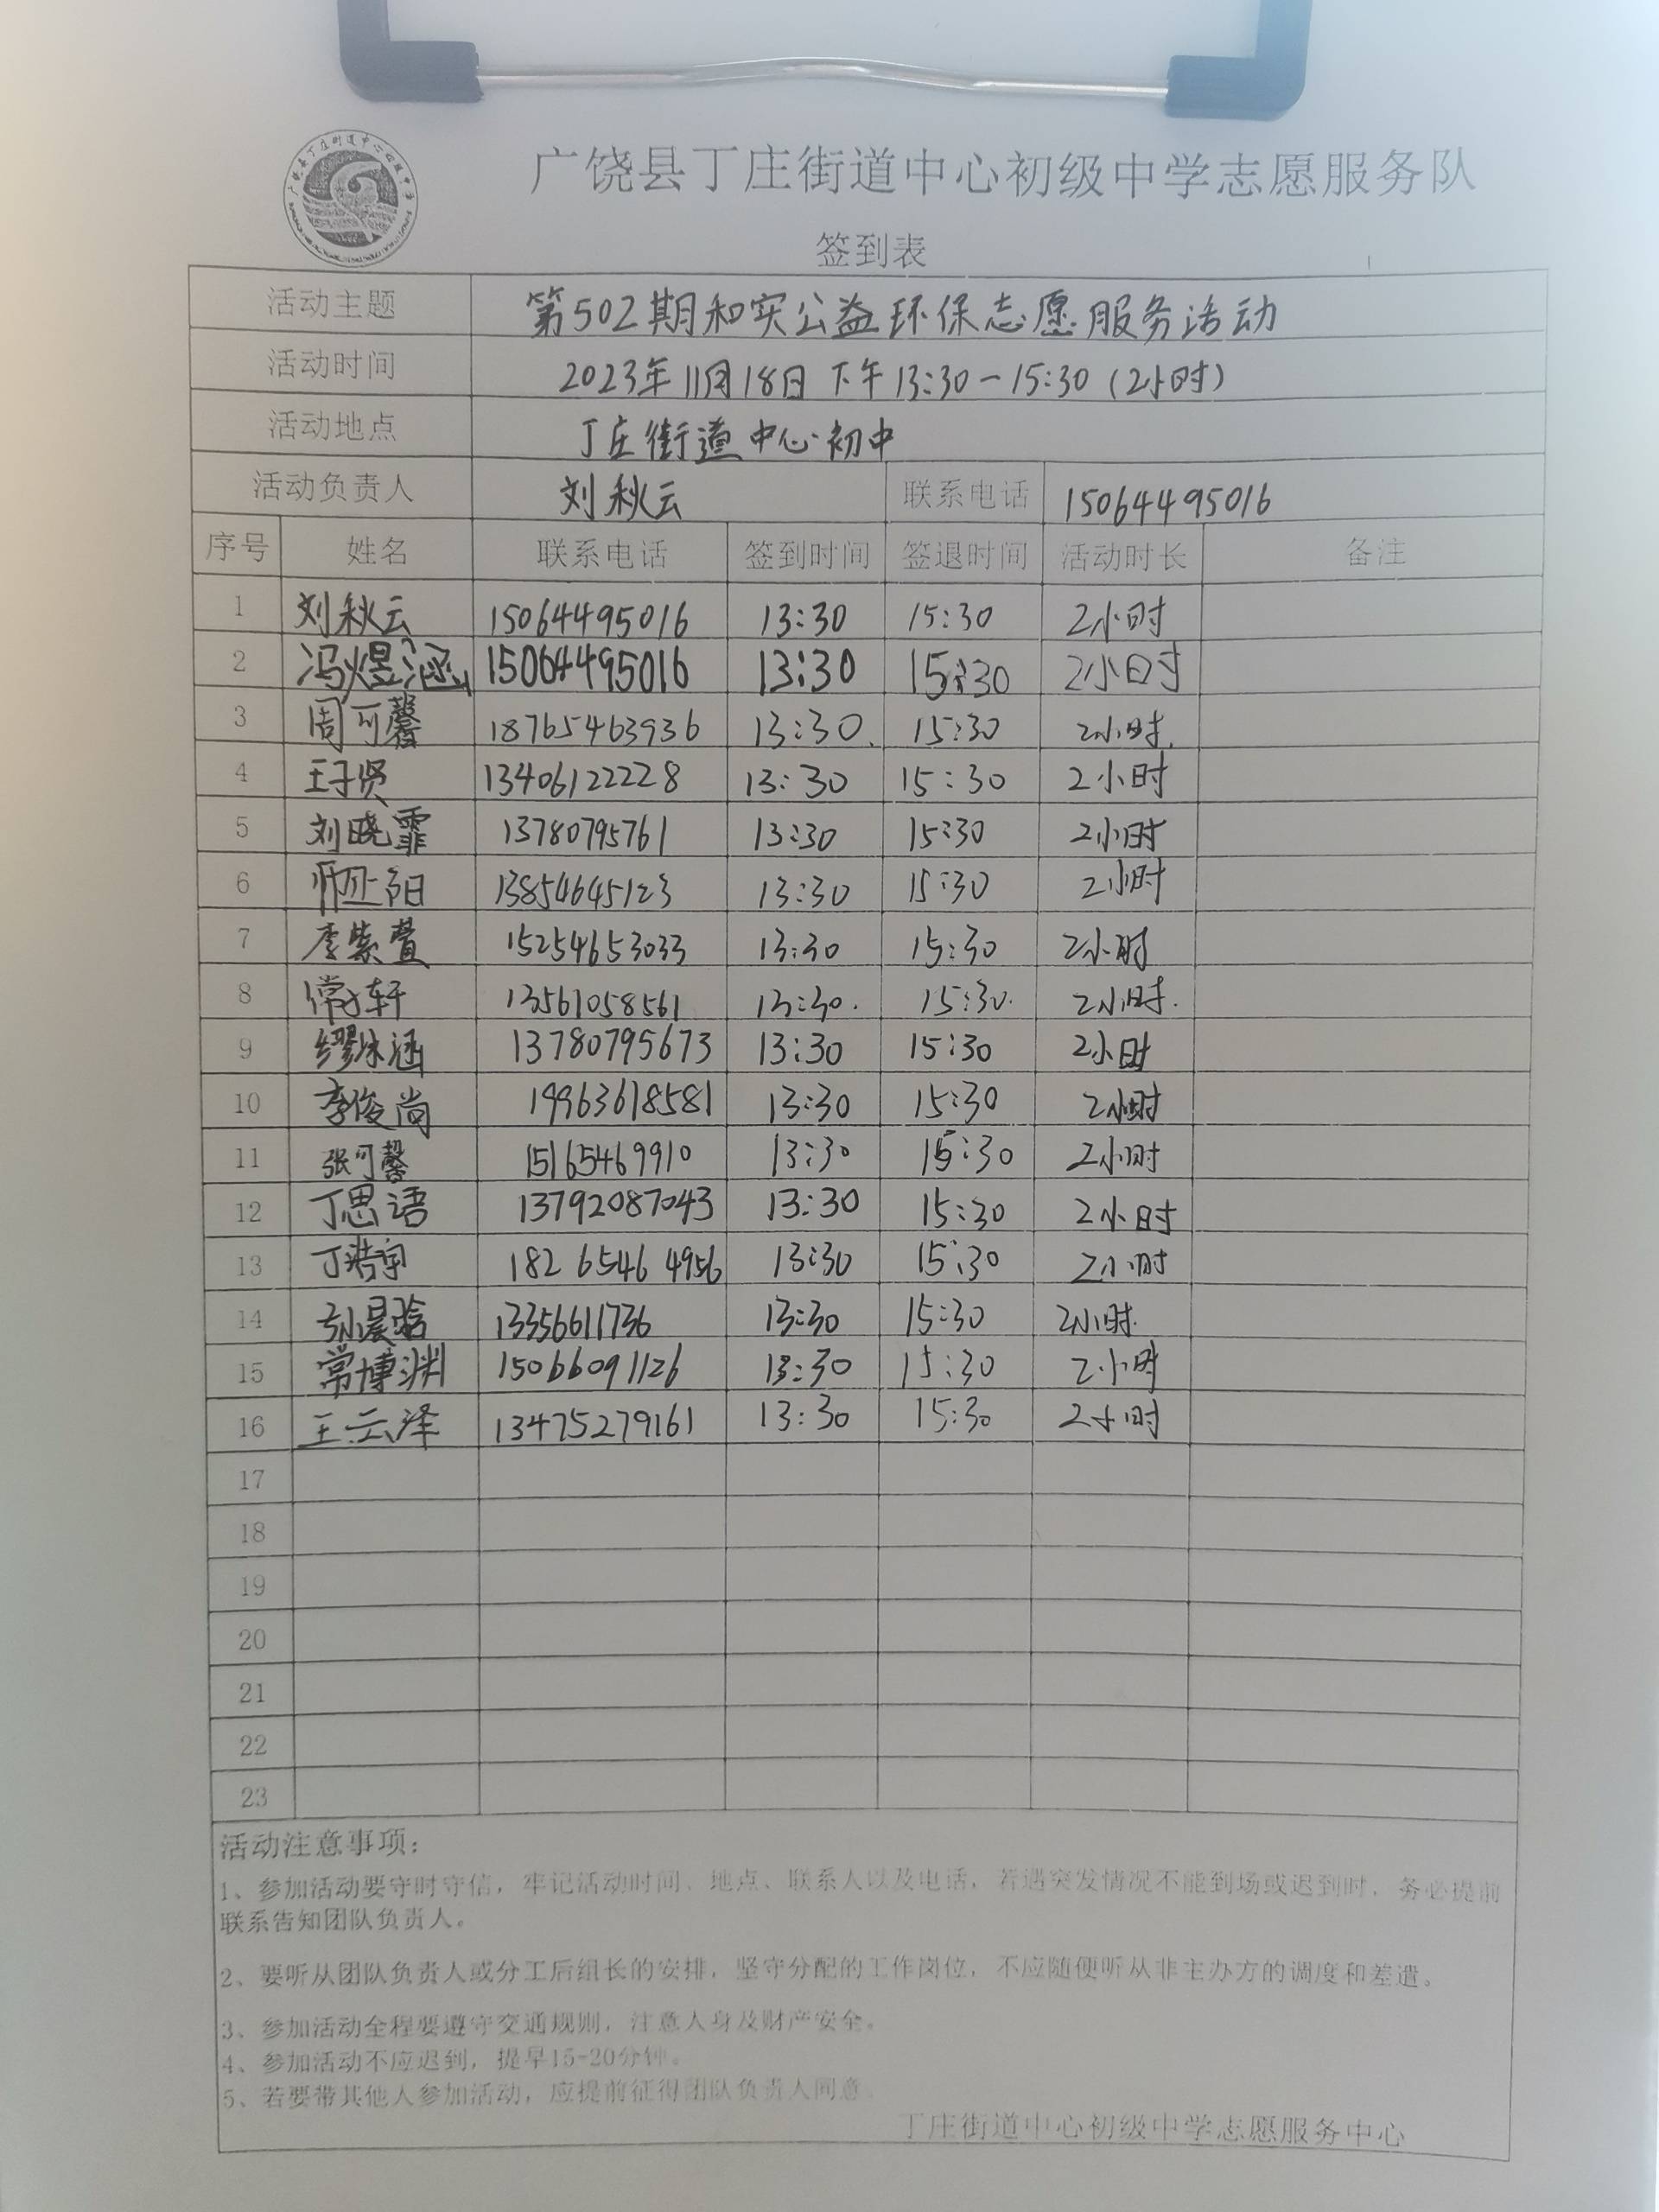 广饶县丁庄街道中心初级中学志愿服务队
签到表
活动主题 第502期和实公益环保志愿服务活动
活动时间 2023年11月18日下午13:30-15:30(2小时)
活动地点 丁庄街道中心初中
活动负责人 刘秋云 联系电话 15064495016
序号 姓名 联系电话 签到时间 签退时间 活动时长 备注
1 刘秋云 15064495016 13:30 15:30 2小时
2 冯煜涵 15064495016 13:30 15:30 2小时
3 周可馨 18765463936 13:30 15:30 2小时
4 王子贤 13406122228 13:30 15:30 2小时
5 刘晓霏 13780795761 13:30 15:30 2小时
6 13854645123 13:30 15:30 2小时
7 李紫萱 15254653033 13:30 15:30 2小时
8 13561058561 13:30 15:30 2小时
9 缪冰涵 13780795673 13:30 15:30 2小时
10 李俊尚 19963618581 13:30 15:30 2小时
11 张可馨 15165469910 13:30 15:30 2小时
12 丁思语 13792087043 13:30 15:30 2小时
13 丁浩宇 182 6546 4956 13:30 15:30 2小时
14 孙昊晗 13356611736 13:30 15:30 2小时
15 常博渊 15066091126 13:30 15:30 2小时
16 王云泽 13475279161 13:30 15:30 2小时
17
18
19
20
21
22
23
活动注意事项：
1、参加活动要守时守信，牢记活动时间、地点、联系人以及电话，若遇突发情况不能到场或迟到时，务必提前
联系告知团队负责人。
2、要听从团队负责人或分工后组长的安排，坚守分配的工作岗位，不应随便听从非主办方的调度和差遣。
3、参加活动全程要遵守交通规则，注意人身及财产安全。
4、参加活动不应迟到，提早15-20分钟。
5、若要带其他人参加活动，应提前征得团队负责人同意。
丁庄街道中心初级中学志愿服务中心